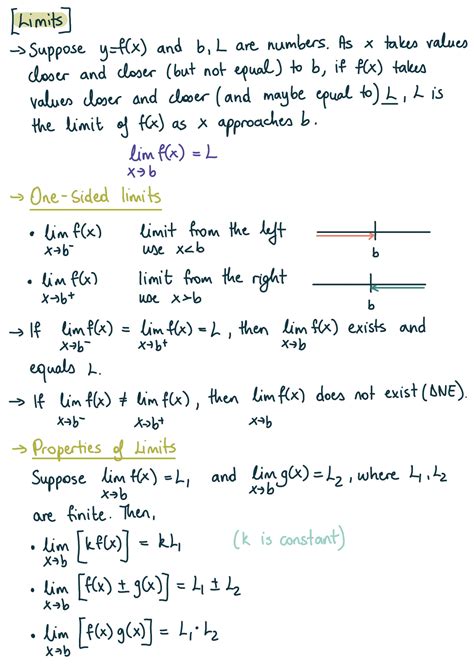 [Limits]
→ Suppose y=f(x) and b, L are numbers. As x takes values
closer and closer (but not equal) to b, if f(x) takes
values closer and closer (and maybe equal to) L, L is
the limit of f(x) as x approaches b.
lim f(x) = L
x→b
→ One-sided limits
• lim f(x) limit from the left
x→b⁻ use x<b
b
• lim f(x) limit from the right
x→b⁺ use x>b
b
→ If lim f(x) = lim f(x) = L, then lim f(x) exists and
x→b⁻ x→b⁺ x→b
equals L.
→ If lim f(x) ≠ lim f(x), then lim f(x) does not exist (DNE).
x→b⁻ x→b⁺ x→b
→ Properties of Limits
Suppose lim f(x) = L₁ and lim g(x) = L₂, where L₁, L₂
x→b x→b
are finite. Then,
• lim [kf(x)] = kL₁ (k is constant)
x→b
• lim [f(x) ± g(x)] = L₁ ± L₂
x→b
• lim [f(x) g(x)] = L₁·L₂
x→b